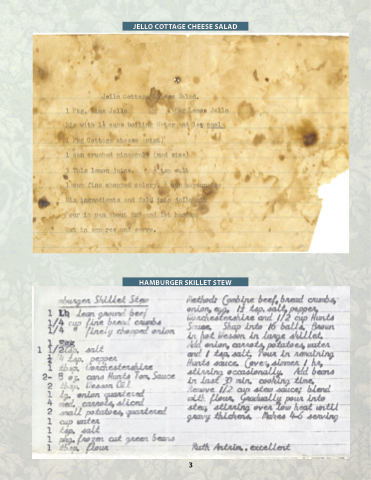 JELLO COTTAGE CHEESE SALAD
Jello Cottage Cheese Salad.
1 Pkg. Lime Jello 1 Pkg Lemon Jello
Mix with 1½ cups boiling Water and let cool.
1 Pkg Cottage cheese
1 can crushed pineapple (med size)
3 Tbls lemon juice. salt
1 cup fine chopped celery. 1 cup mayonnaise
Mix ingredients and fold into jello
Pour in pan about and let harden
Cut in squares and serve.
HAMBURGER SKILLET STEW
Hamburger Skillet Stew
1 Lb lean ground beef
1/4 cup fine bread crumbs
1/4 " finely chopped onion
1 Egg
1 1/2 tsp. salt
1/4 tsp. pepper
1 tbsp. Worchestershire
2- 8 oz. cans Hunts Tom. Sauce
2 tbsp. Wesson Oil
1 lg. onion quartered
4 med. carrots, sliced
2 small potatoes, quartered
1 cup water
1 tsp. salt
1 pkg. frozen cut green beans
1 tbsp. flour
Method: Combine beef, bread crumbs,
onion, egg, 1½ tsp. salt, pepper,
Worchestershire and 1/2 cup Hunts
Sauce. Shap into 16 balls. Brown
in hot Wesson in large skillet.
Add onion, carrots, potatoes, water
and 1 tsp. salt. Pour in remaining
Hunts sauce. Cover, simmer 1 hr,
stirring occasionally. Add beans
in last 30 min. cooking time.
Remove 1/2 cup stew sauce; blend
with flour. Gradually pour into
stew, stirring over low heat until
gravy thickens. Makes 4-6 serving
Ruth Antrim, excellent
3